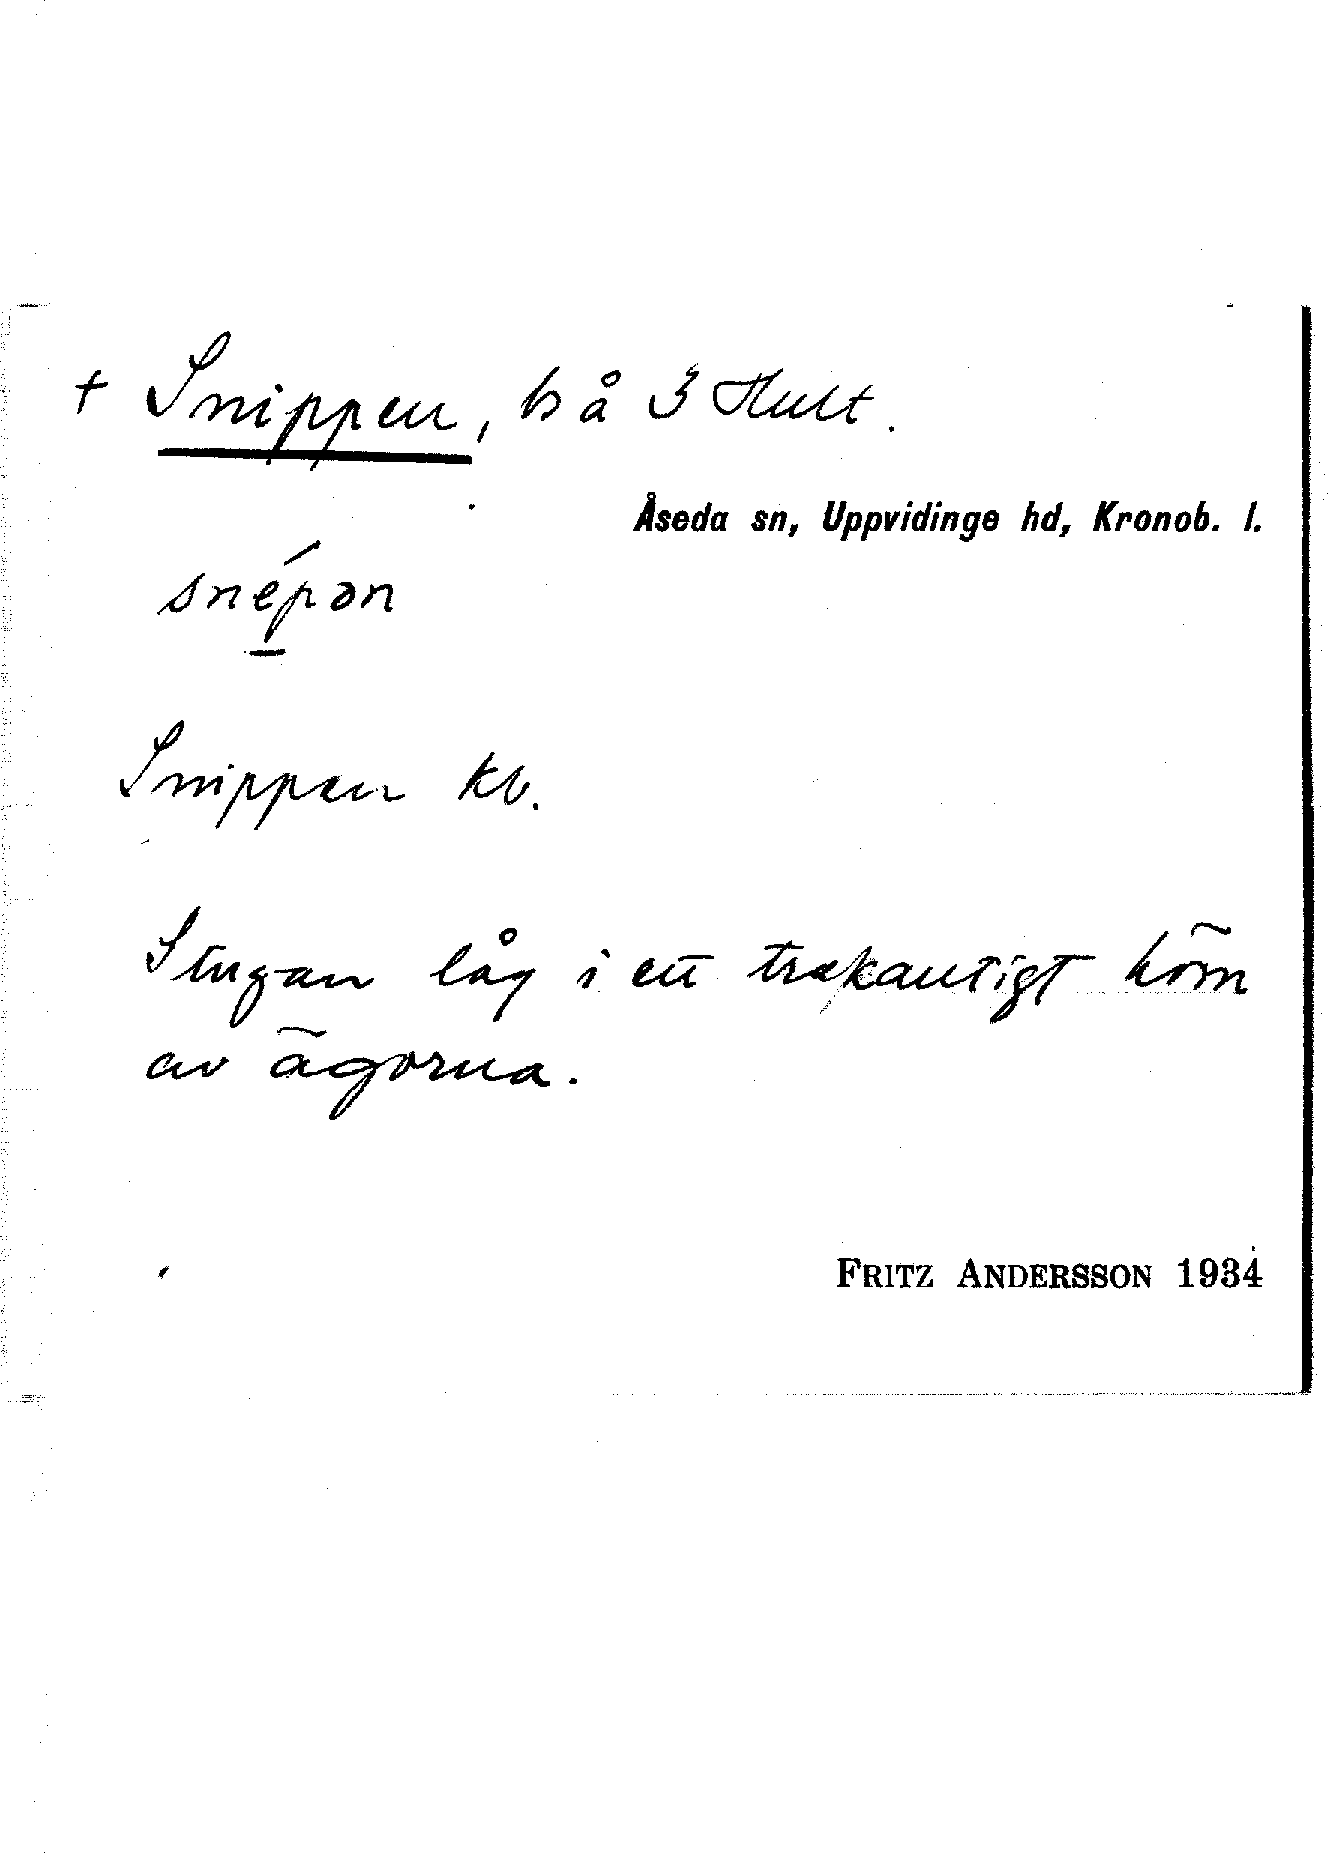 † Snippen, bs å 3 Hult.
Åseda sn, Uppvidinge hd, Kronob. l.
snépən
Snippen kb.
Stugan låg i ett trekantigt hörn
av ägorna.
FRITZ ANDERSSON 1934